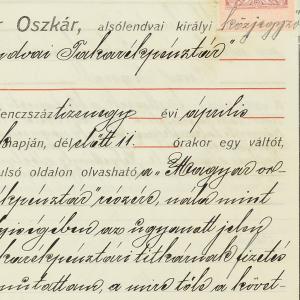 r Oszkár, alsólendvai királyi közjegyző
ndvai Takarékpénztár"
enczszáz tizenegy évi április
napján, dél előtt 11. órakor egy váltót,
ulsó oldalon olvasható, a „Magyar or-
kpénztár" részére, nála mint
az ugyanott jelen
karékpénztári titkárnak fizetés
mutattam, a mire tőle a követ-